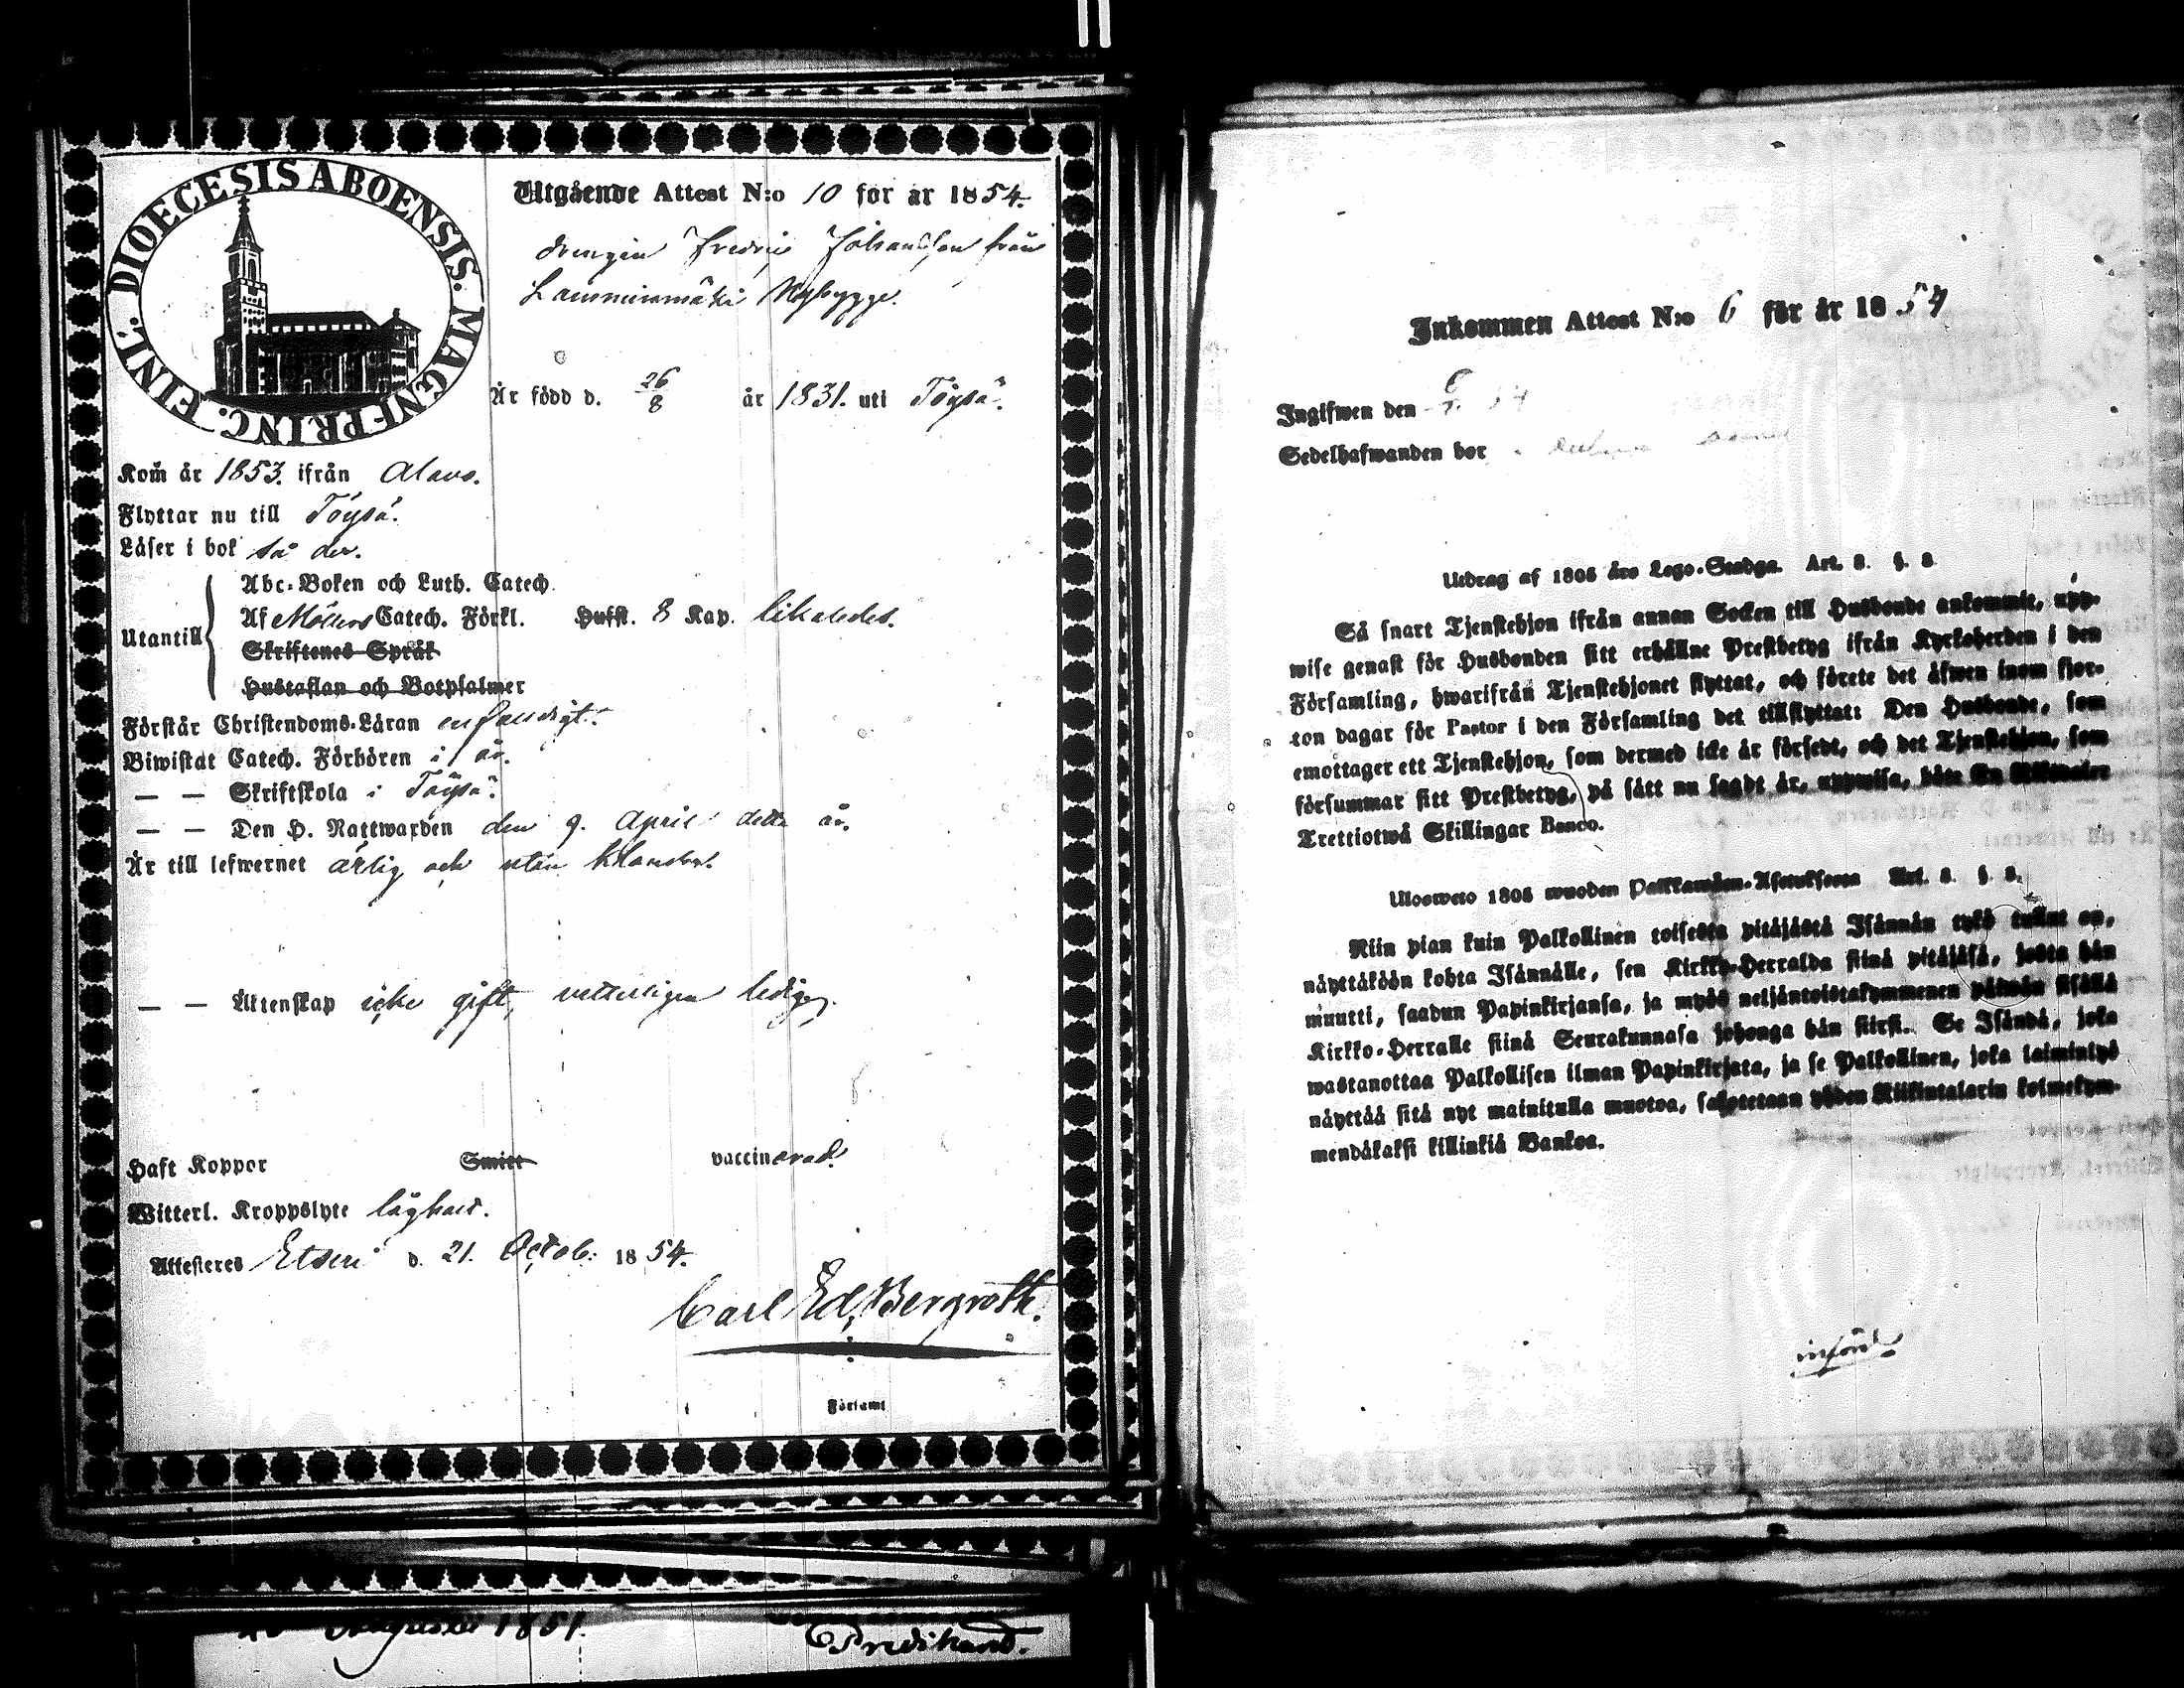 DIOECESIS ABOENSIS. MAGNI-PRINC. FINL.
Utgående Attest N:o 10 för år 1854.
drengen Fredric Johansson från
Nybygge.
Är född d. 26/8 år 1831. uti Töysä.
Kom̄ år 1853. ifrån Alavo.
Flyttar nu till Töysä.
Läser i bok så der.
Utantill
Abc-Boken och Luth. Catech.
Af Möllers Catech. Förkl. Husst. 8 Kap. likaledes.
Skriftenes Språk
Hustaflan och Botpsalmer
Förstår Christendoms-Läran enfaldigt.
Biwistat Catech. Förhören i år.
— — Skriftskola i Töysä.
— — Den H. Nattwarden den 9. April detta år.
Är till lefwernet ärlig och utan klander.
— — Äktenskap icke gift, vetterligen ledig.
Haft Koppor Smitt vaccinerad.
Witterl. Kroppslyte låghalt.
Attesteres Etseri d. 21. Octob: 1854.
Carl Ed. Bergroth.
Församl
Augusti 1851.
Inkommen Attest N:o 6 för år 1854
Ingifwen den
Sedelhafwanden bor
Utdrag af 1805 års Lego-Stadga. Art. 8. §. 8
Så snart Tjenstehjon ifrån annan Socken till Husbonde ankommit, upp-
wise genast för Husbonden sitt erhållne Prestbetyg ifrån Kyrkoherden i den
Församling, hwarifrån Tjenstehjonet flyttat, och förete det äfwen inom fjor-
ton dagar för Pastor i den Församling det tillflyttat: Den Husbonde, som
emottager ett Tjenstehjon, som dermed icke är försedt, och det Tjenstehjon, som
försummar sitt Prestbetyg, på sätt nu sagdt är, uppwisa, böte En Riksdaler
Trettiotwå Skillingar Banco.
Ulosweto 1805 wuoden Palkkawäen-Asetuksesta Art. 8. §. 8.
Niin pian kuin Palkollinen toisesta pitäjästä Isännän tykö tullut on,
näyttäköön kohta Isännälle, sen Kirkko-Herralda siinä pitäjäsä, josta hän
muutti, saadun Papinkirjansa, ja myös neljäntoistakymmenen päiwän sisällä
Kirkko-Herralle siinä Seurakunnasa johonga hän siirsi. Se Isändä, joka
wastanottaa Palkollisen ilman Papinkirjata, ja se Palkollinen, joka laiminlyö
näyttää sitä nyt mainitulla muotoa, sakotetaan yhden Riikintalarin kolmekym-
mendäkaksi killinkiä Bankoa.
införd